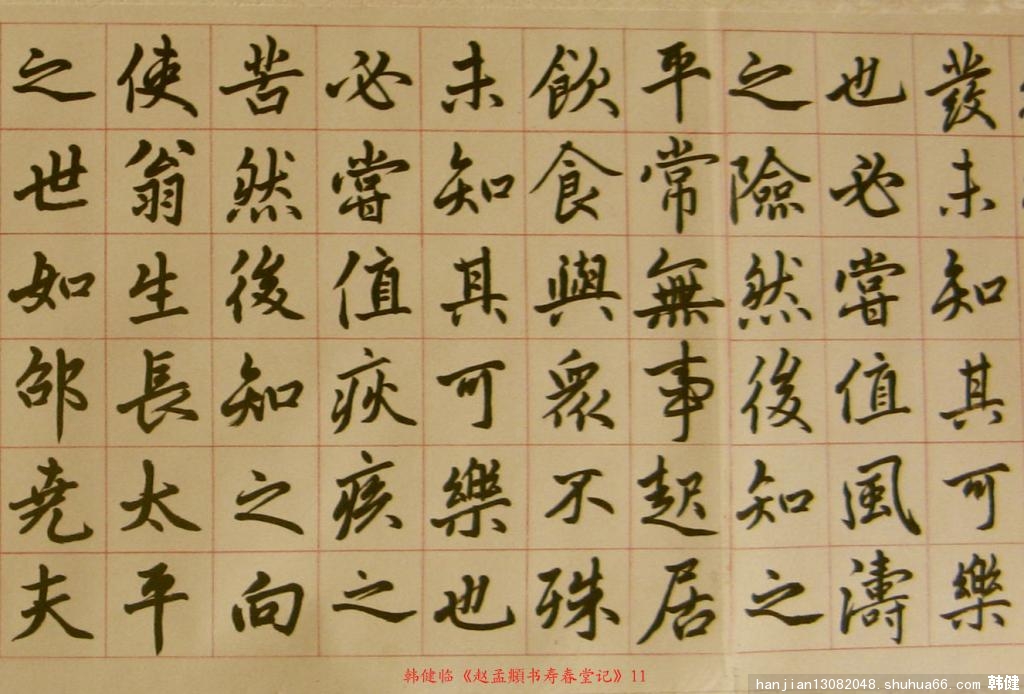 發未知其可樂
也必嘗值風濤
之險然後知之
平常無事起居
飲食與衆不殊
未知其可樂也
必嘗值疢疾之
苦然後知之向
使翁生長太平
之世如邵堯夫
韩健临《赵孟頫书寿春堂记》11
hanjian13082048.shuhua66.com 韩健